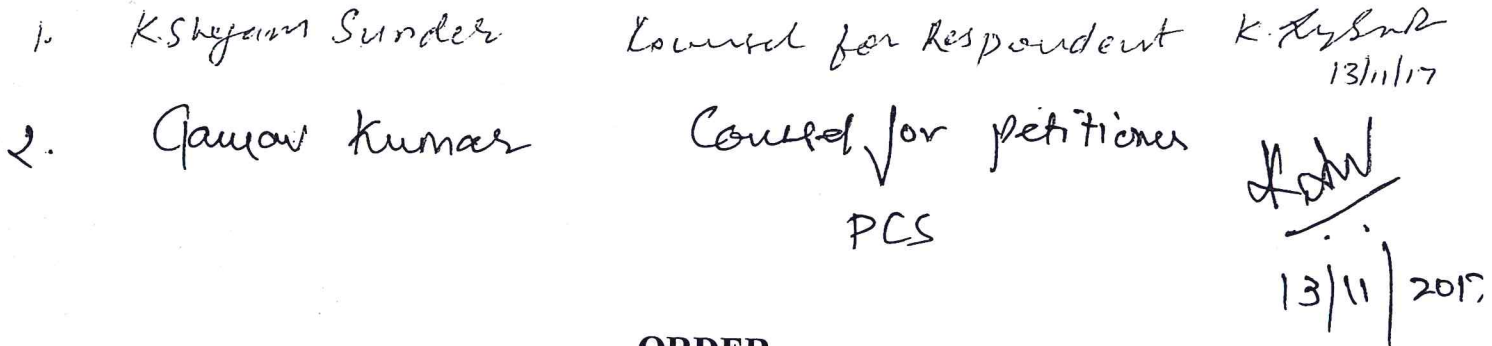 1. K. Shyam Sunder Counsel for Respondent
13/11/17
2. Gaurav Kumar Counsel for petitioner
PCS
13/11/2017
ORDER